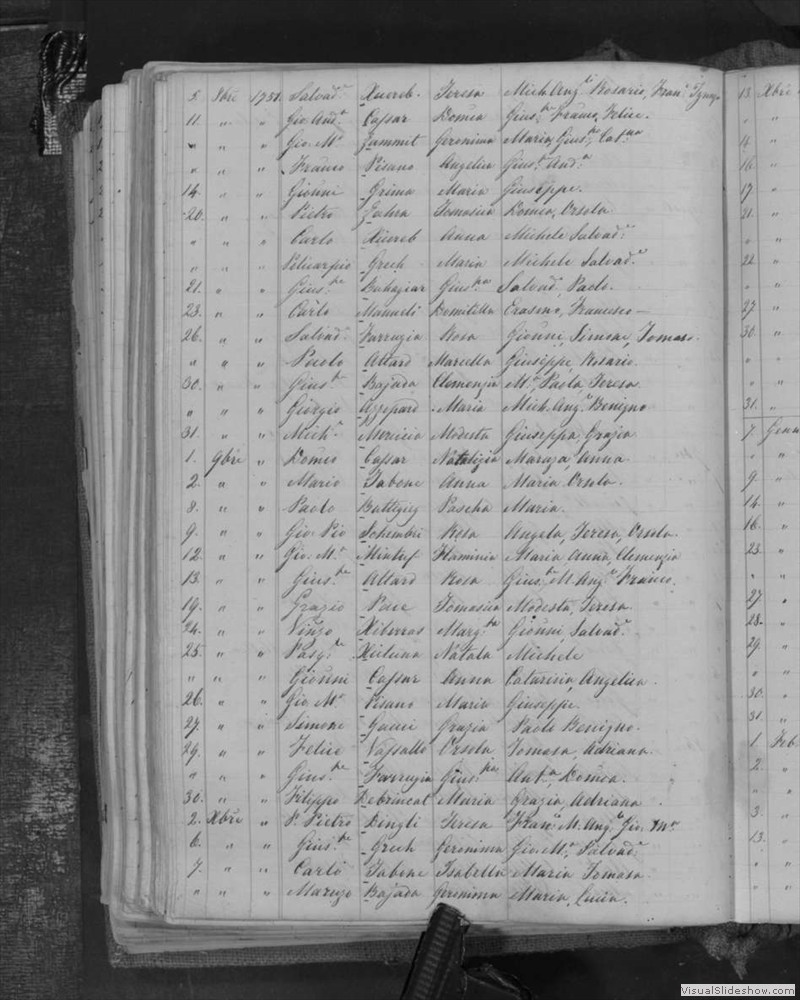 5. 8bre 1751. Salvad.e Xuereb Teresa Mich.Ang.lo Rosario, Fran.o Ignaz.o
11. " " Gio And.a Cassar Domca Gius.pe Franco, Felice.
" " " Gio. M.a Zammit Geronima Maria, Gius.pe, Cat.na
" " " Franco Pisano Angelica Gius.e And.a
14. " " Gionni Grima Maria Giuseppe.
20. " " Pietro Zahra Tomasina Domco, Orsola.
" " " Carlo Xuereb Anna Michele Salvad.e
" " " Policarpio Grech Maria Michele Salvad.e
21. " " Gius.pe Buhagiar Gius.pa Salvad.e Paolo.
23. " " Carlo Manueli Domitilla Erasmo, Francesco
26. " " Salvad.e Farrugia Rosa Gionni, Simone, Tomaso.
" " " Paolo Attard Marcella Giuseppe, Rosario.
30. " " Gius.e Bajada Clemenzia M.a Paola, Teresa.
" " " Giorgio Azzopard Maria Mich.Ang.o Benigno
31. " " Mich.e Mericia Modesta Giuseppa, Grazia
1. 9bre " Domco Cassar Natalizia Maruzza, Anna
2. " " Mario Tabone Anna Maria Orsola.
8. " " Paolo Battigieg Pascha Maria.
9. " " Gio. Pio Schembri Rosa Angela, Teresa, Orsola.
12. " " Gio. M.a Mintuf Flaminia Maria Anna, Clemenzia
13. " " Gius.pe Attard Rosa Gius.pe M.Ang.o Franco.
19. " " Grazio Pace Tomasina Modesta, Teresa.
24. " " Vinzo Xiberras Marg.ta Gionni, Salvad.e
25. " " Pasq.le Xicluna Natala Michele
" " " Gionni Cassar Anna Catarina, Angelica.
26. " " Gio M.a Pisano Maria Giuseppe.
27. " " Simone Gauci Grazia Paolo Benigno.
29. " " Felice Vassallo Orsola Tomasa, Adriana.
" " " Gius.pe Farrugia Gius.pa Ant.a, Domca.
30. " " Filippo Debrincat Maria Grazia, Adriana
2. Xbre " P. Pietro Dingli Teresa Fran.o M.Ang.o Gio. M.a
6. " " Gius.pe Grech Geronima Gio. M.a, Salvad.e
7. " " Carlo Tabone Isabella Maria Tomasa.
" " " Maruzo Bajada Geronima Maria, Lucia.
13. Xbre
" "
14 "
16 "
17 "
21. "
" "
22. "
" "
27. "
30. "
" "
" "
31. "
7. Genn
" "
9. "
14. "
16. "
23. "
" "
27. "
28. "
29. "
" "
30. "
31. "
1. Feb
2. "
" "
3. "
13. "
" "
" "
VisualSlideshow.com